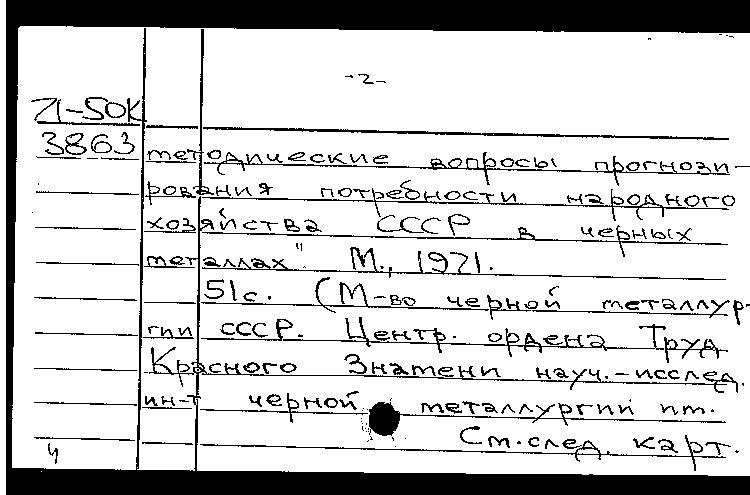 -2-
71-50К
3863
методические вопросы прогнози-
рования потребности народного
хозяйства СССР в черных
металлах". М., 1971.
51с. (М-во черной металлур-
гии СССР. Центр. ордена Труд
Красного Знамени науч.-исслед.
ин-т черной металлургии им.
См.след. карт.
ч